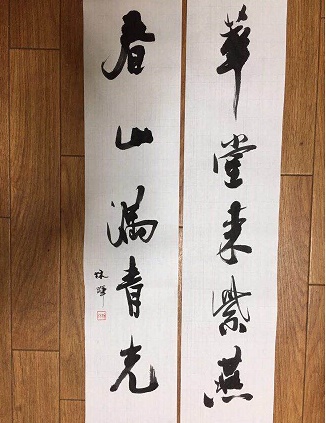 華堂来紫燕
春山満青光